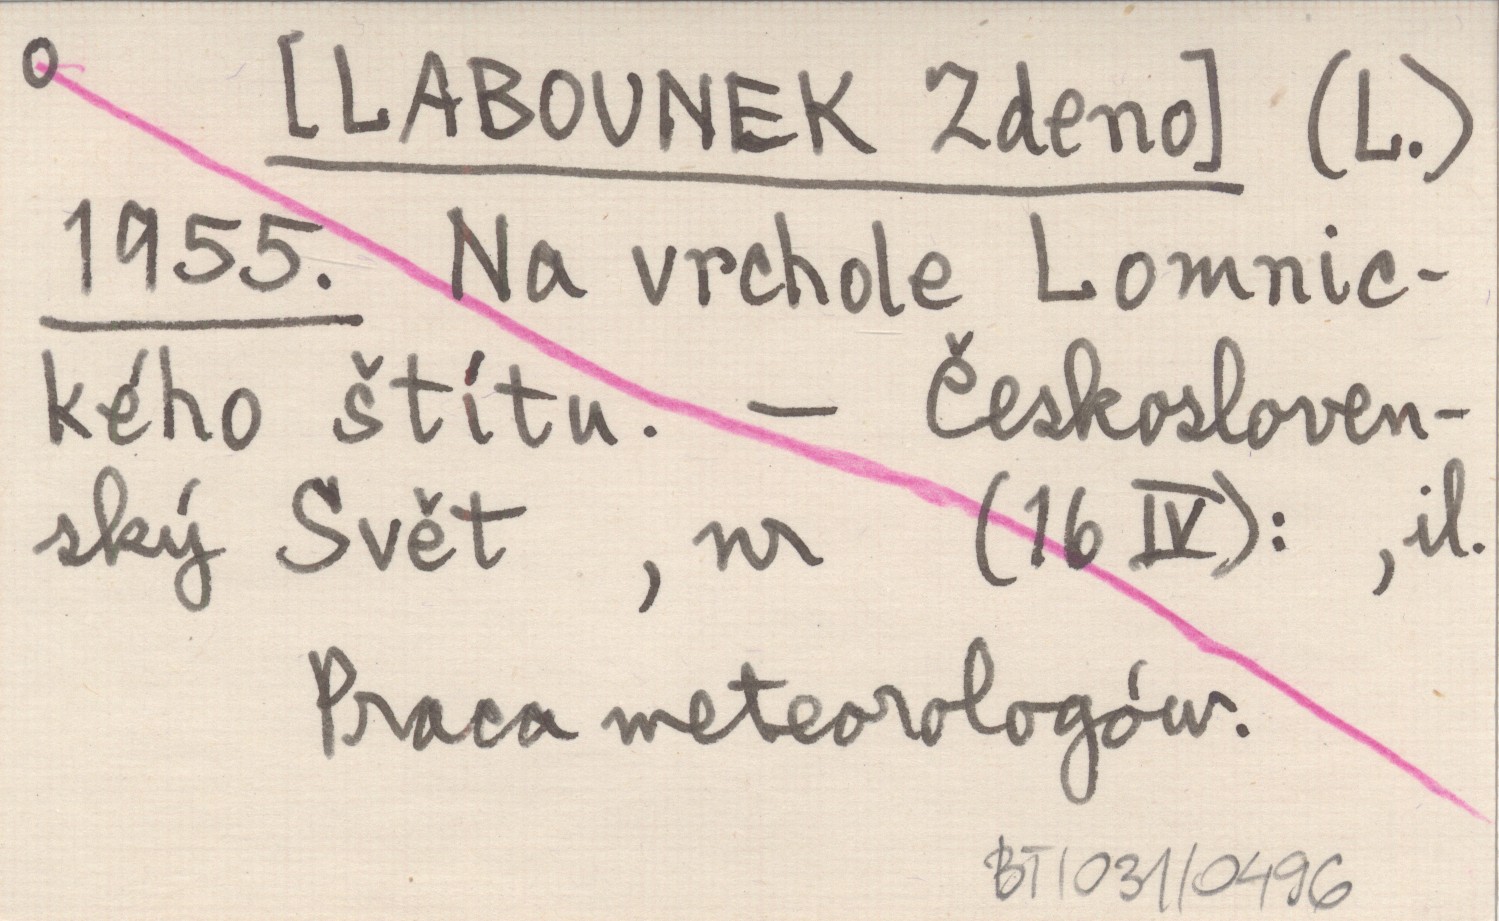 o [LABOUNEK Zdeno] (L.)
1955. Na vrchole Lomnic-
kého štítu. — Českosloven-
ský Svět , nr (16 IV): , il.
Praca meteorologów.
BT/031/0496